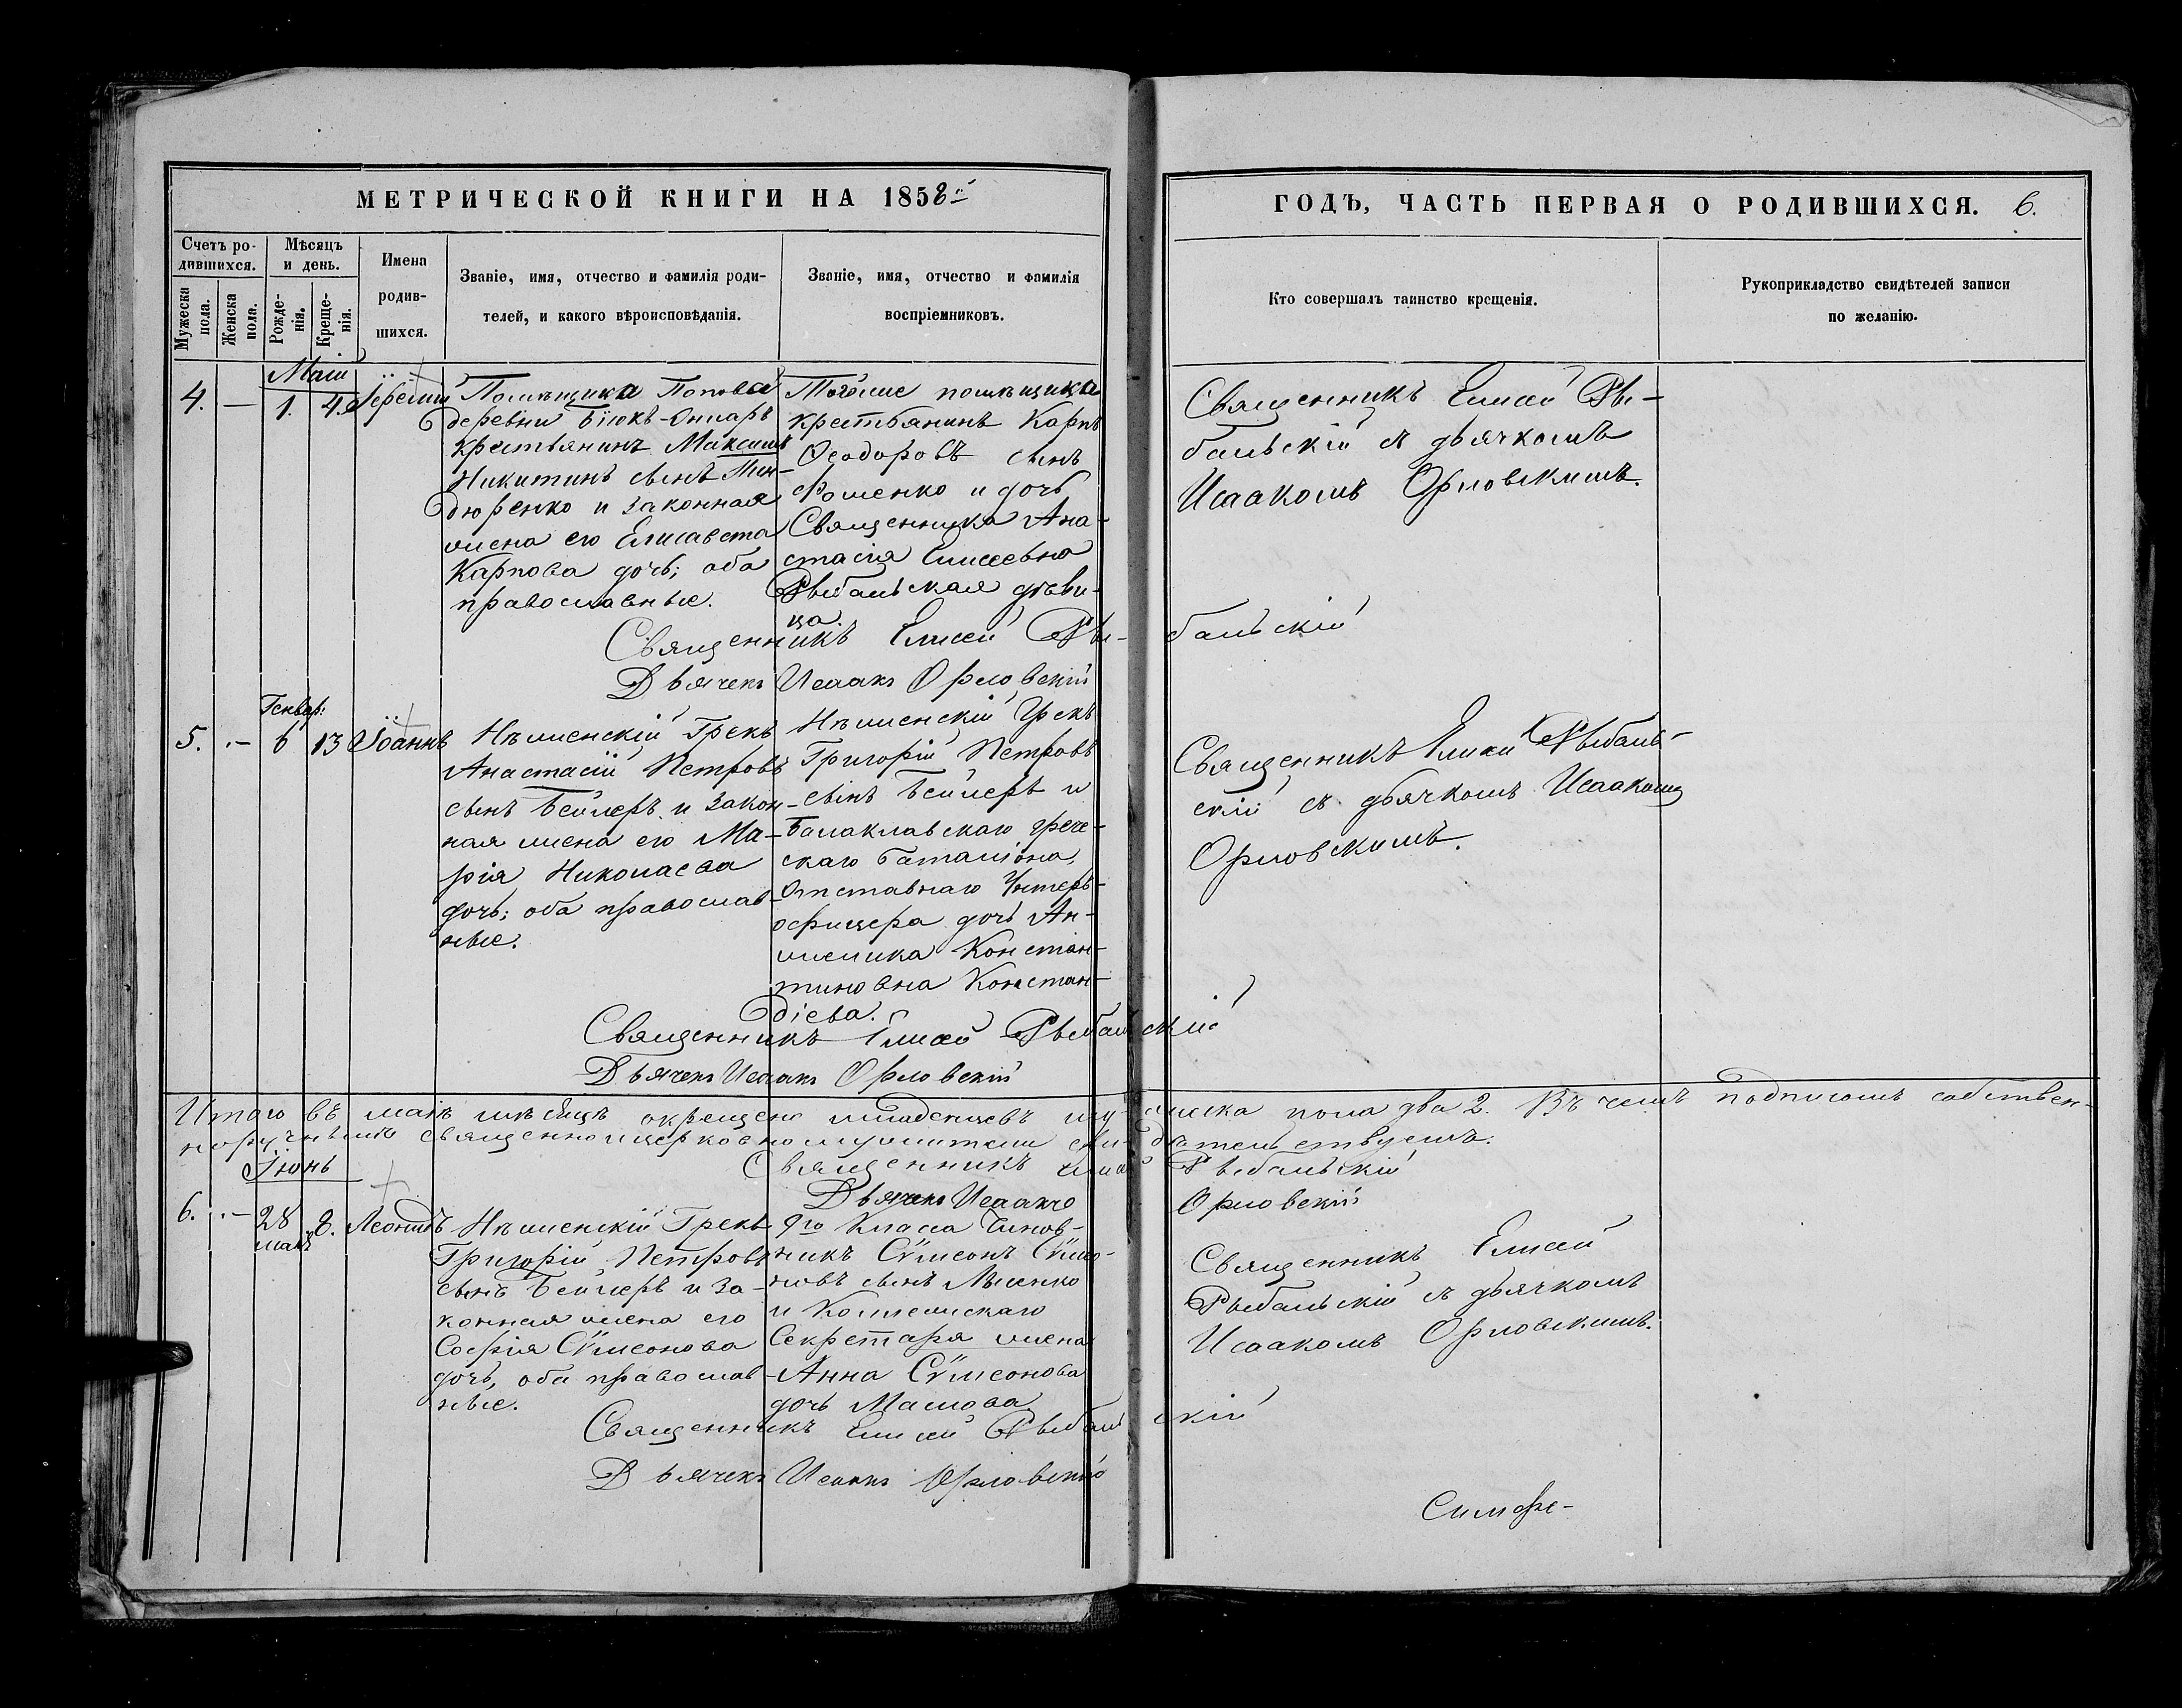 МЕТРИЧЕСКОЙ КНИГИ НА 1858й
ГОДЪ, ЧАСТЬ ПЕРВАЯ О РОДИВШИХСЯ. 6.
Счетъ ро-
дившихся.
Мужеска пола.
Женска пола.
Мѣсяцъ
и день.
Рожде-
нія.
Креще-
нія.
Имена
родив-
шихся.
Званіе, имя, отчество и фамилія роди-
телей, и какого вѣроисповѣданія.
Званіе, имя, отчество и фамилія
воспріемниковъ.
Кто совершалъ таинство крещенія.
Рукоприкладство свидѣтелей записи
по желанію.
Маій
4. — 1. 4. Іеремій
Помѣщика Попова
деревни Біюкъ-Онларъ
крестьянинъ Максимъ
Никитинъ сынъ Мин-
дюренко и законная
жена его Елисавета
Карпова дочь; оба
православные.
Тогоже помѣщика
крестьянинъ Карпъ
Ѳеодоровъ сынъ
Фоменко и дочь
Священника Ана-
стасія Елисеевна
Рыбальская дѣви-
ца.
Священникъ Елисей Ры-
бальскій съ дьячкомъ
Исаакомъ Орловскимъ.
Священникъ Елисей Ры-бальскій
Дьячекъ Исаакъ Орловскій
Генвар:
5. — 6 13 Іоаннъ
Нѣженскій Грекъ
Анастасій Петровъ
сынъ Бейлеръ и закон-
ная жена его Ма-
рія Николаева
дочь; оба православ-
ные.
Нѣженскій Грекъ
Григорій Петровъ
сынъ Бейлеръ и
Балаклавскаго грече-
скаго баталіона,
Отставнаго Унтеръ-
офицера дочь Ан-
желика Констан-
тиновна Констан-
діева.
Священникъ Елисей Рыбаль-
скій съ дьячкомъ Исаакомъ
Орловскимъ.
Священникъ Елисей Рыбальскій
Дьячекъ Исаакъ Орловскій
Итого въ маіѣ мѣсяцѣ окрещено младенцевъ му-жеска пола два 2. Въ чемъ подписомъ собствен-
норучнымъ священноицерковнослужители сви-дѣтельствуемъ.
Священникъ Елисей Рыбальскій
Дьячекъ Исаакъ Орловскій
Іюнь
6. — 28 мая 8. Леонидъ
Нѣженскій Грекъ
Григорій Петровъ
сынъ Бейлеръ и за-
конная жена его
Софія Сѵмеонова
дочь, оба православ-
ные.
9го Класса Чинов-
никъ Сѵмеонъ Сѵмо-
новъ сынъ Лысенко
и Коллежскаго
Секретаря жена
Анна Сѵмеонова
дочь Маслова
Священникъ Елисей
Рыбальскій съ дьячкомъ
Исаакомъ Орловскимъ.
Священникъ Елисей Рыбальскій
Дьячекъ Исаакъ Орловскій
Симфе-